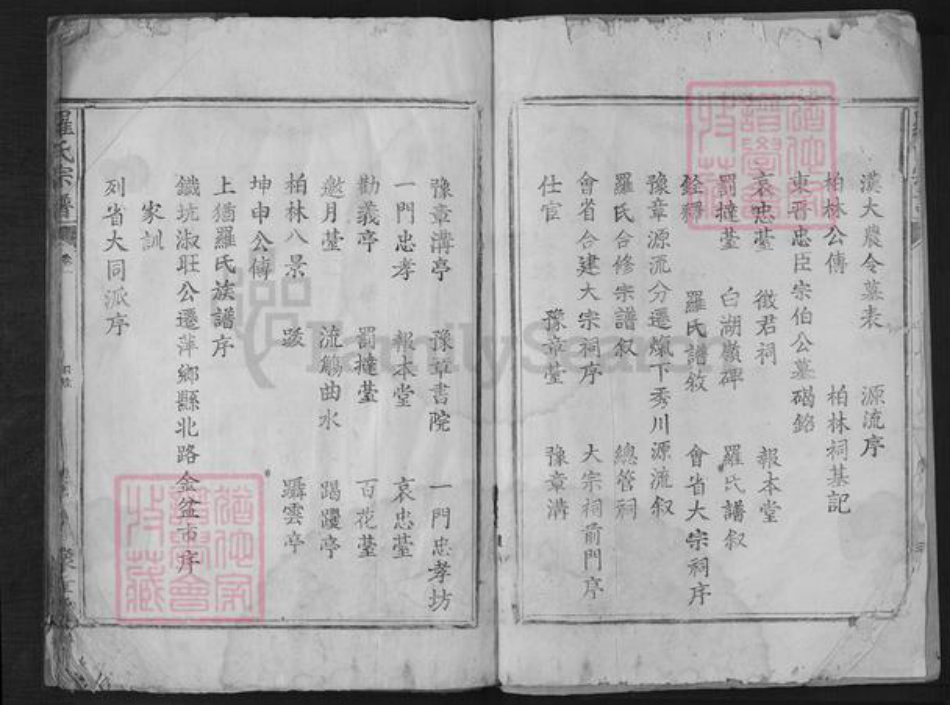 漢大農令墓表 源流序
柏林公傳 柏林祠基記
東晉忠臣宗伯公墓碣銘
哀忠䑓 徵君祠 報本堂
罰撻䑓 白湖嶺碑 羅氏譜叙
銓釋 羅氏譜敘 會省大宗祠序
豫章源流分遷㷟下秀川源流叙
羅氏合修宗譜叙 總管祠
會省合建大宗祠序 大宗祠前門序
仕宦 豫章䑓 豫章溝
豫章溝亭 豫章書院 一門忠孝坊
一門忠孝 報本堂 哀忠䑓
勸義亭 罰撻䑓 百花䑓
邀月䑓 流觴曲水 蹋躩亭
柏林八景 跋 躡雲亭
坤申公傳
上猶羅氏族譜序
鐵坑淑旺公遷萍鄉縣北路金盆市序
家訓
列省大同派序
羅氏宗譜 卷一
FamilySearch